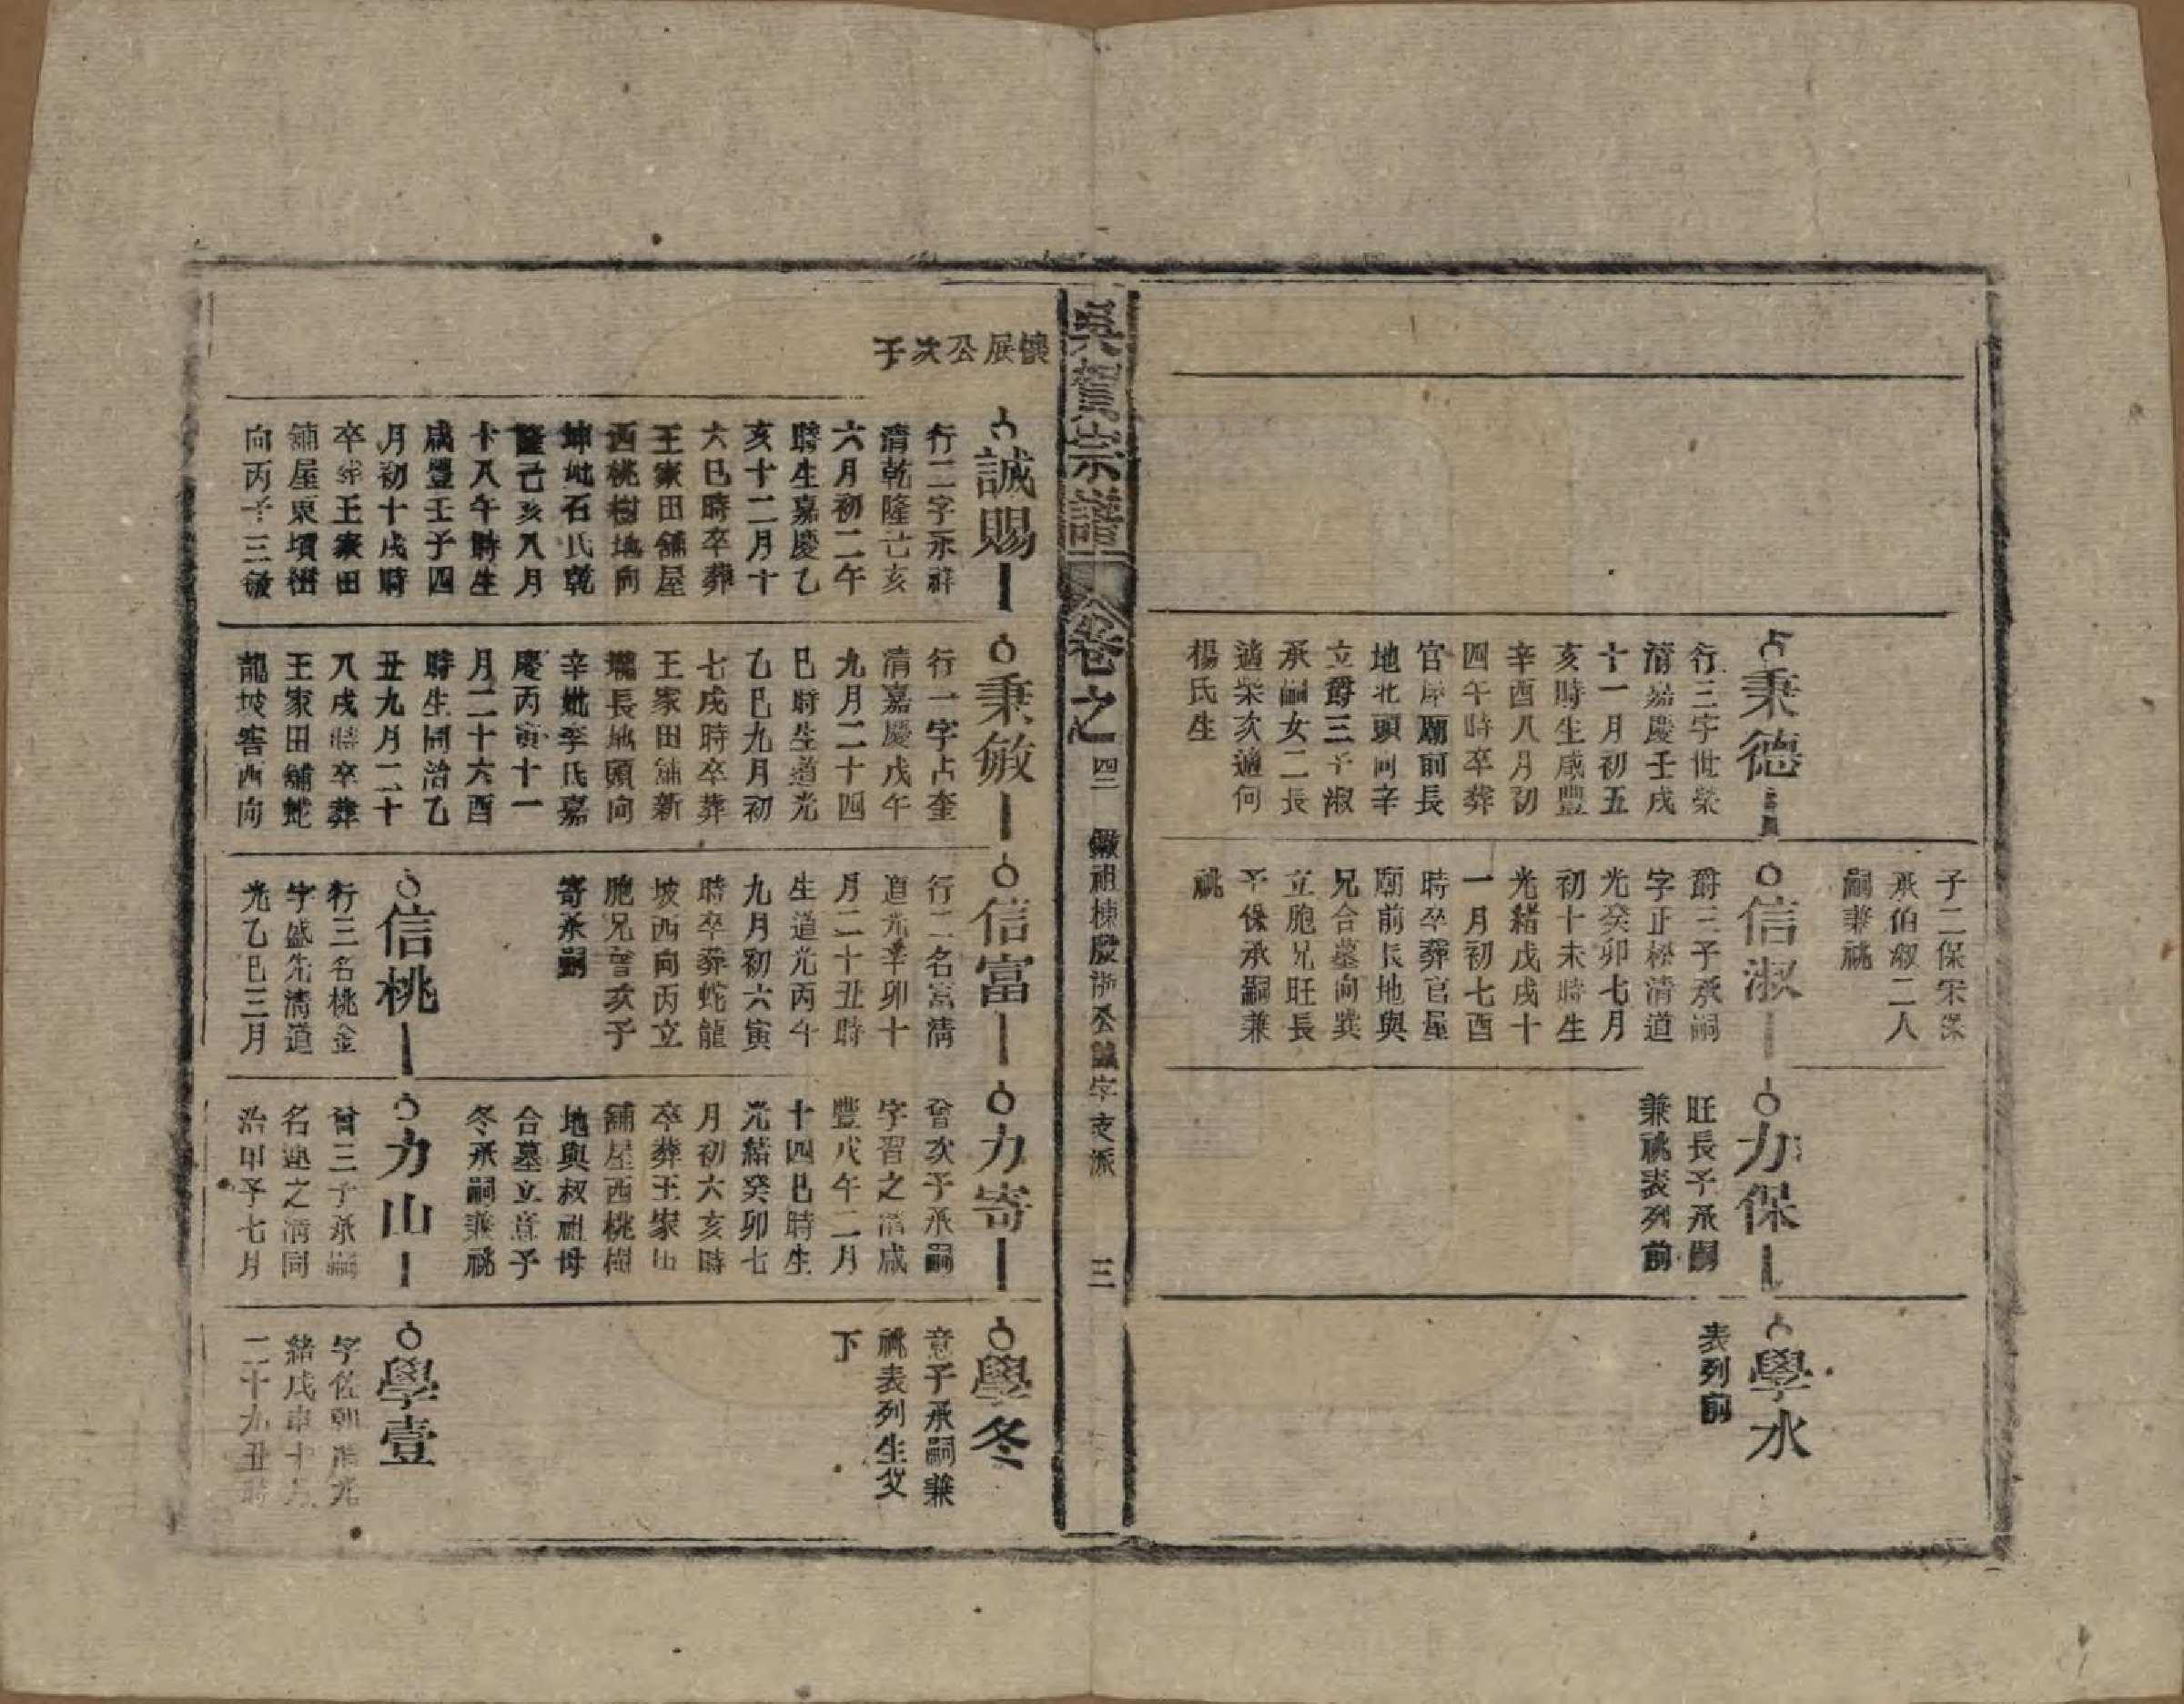 秉德
行三字世榮
清嘉慶壬戌
十一月初五
亥時生咸豐
辛酉八月初
四午時卒葬
官屋廟前長
地北頭向辛
立爵三子淑
承嗣女二長
適柴次適何
楊氏生
子二保宋
承伯叔二人
嗣兼祧
信淑
爵三子承嗣
字正松清道
光癸卯七月
初十未時生
光緒戊戌十
一月初七酉
時卒葬官屋
廟前長地與
兄合墓向巽
立胞兄旺長
子保承嗣兼
祧
力保
旺長子承嗣
兼祧表列前
學水
表列前
吳賀宗譜
卷之
四二
徽祖棟 公誠字支派
三
懷展公次子
誠賜
行二字永祥
清乾隆己亥
六月初二午
時生嘉慶乙
亥十二月十
六巳時卒葬
王家田舖屋
西桃樹地向
坤妣石氏乾
隆己亥八月
十八午時生
咸豐壬子四
月初十戌時
卒葬王家田
舖屋東墳
向丙子三敏
秉敏
行一字占奎
清嘉慶戊午
九月二十四
巳時生道光
乙巳九月初
七戌時卒葬
王家田舖新
壠長地頭向
辛妣李氏嘉
慶丙寅十一
月二十六酉
時生同治乙
丑九月二十
八戌時卒葬
王家田舖蛇
龍坡窖西向
信富
行二名富清
道光辛卯十
月二十丑時
生道光丙午
九月初六寅
時卒葬蛇龍
坡西向丙立
胞兄曾次子
寄承嗣
信桃
行三名桃金
字盛先清道
光乙巳三月
力寄
曾次子承嗣
字習之清咸
豐戊午二月
十四巳時生
光緒癸卯七
月初六亥時
卒葬王家田
舖屋西桃樹
地與叔祖母
合墓立意子
冬承嗣兼祧
力山
曾三子承嗣
名迎之清同
治甲子七月
學冬
意子承嗣兼
祧表列生父
下
學壹
字佐朝清光
緒戊申十月
二十九丑時